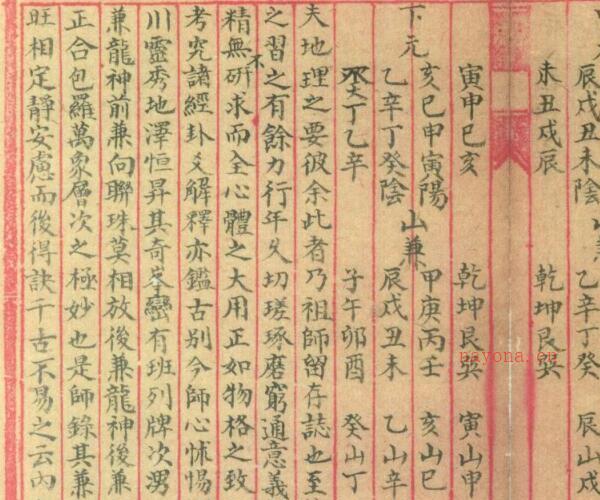 辰戌丑未陰 山兼 乙辛丁癸 辰山戌
未丑戌辰 乾坤艮巽
寅申巳亥 乾坤艮巽 寅山申
下元 亥巳申寅陽 山兼 甲庚丙壬 亥山巳
乙辛丁癸陰 辰戌丑未 乙山辛
癸丁乙辛 子午卯酉 癸山丁
夫地理之要彼余此者乃祖師留存誌也至
之習之有餘力行年久切瑳琢磨窮通意義
精無不研求而全心體之大用正如物格之致
考究諸經卦爻解釋亦鑑古別今師心怵惕
川靈秀地澤恒昇其奇峯巒有班列牌次澇
兼龍神前兼向聯珠莫相放後兼龍神後兼
正合包羅萬象層次之極妙也是師錄其兼
旺相定靜安慮而後得訣千古不易之云內
nayona.cn